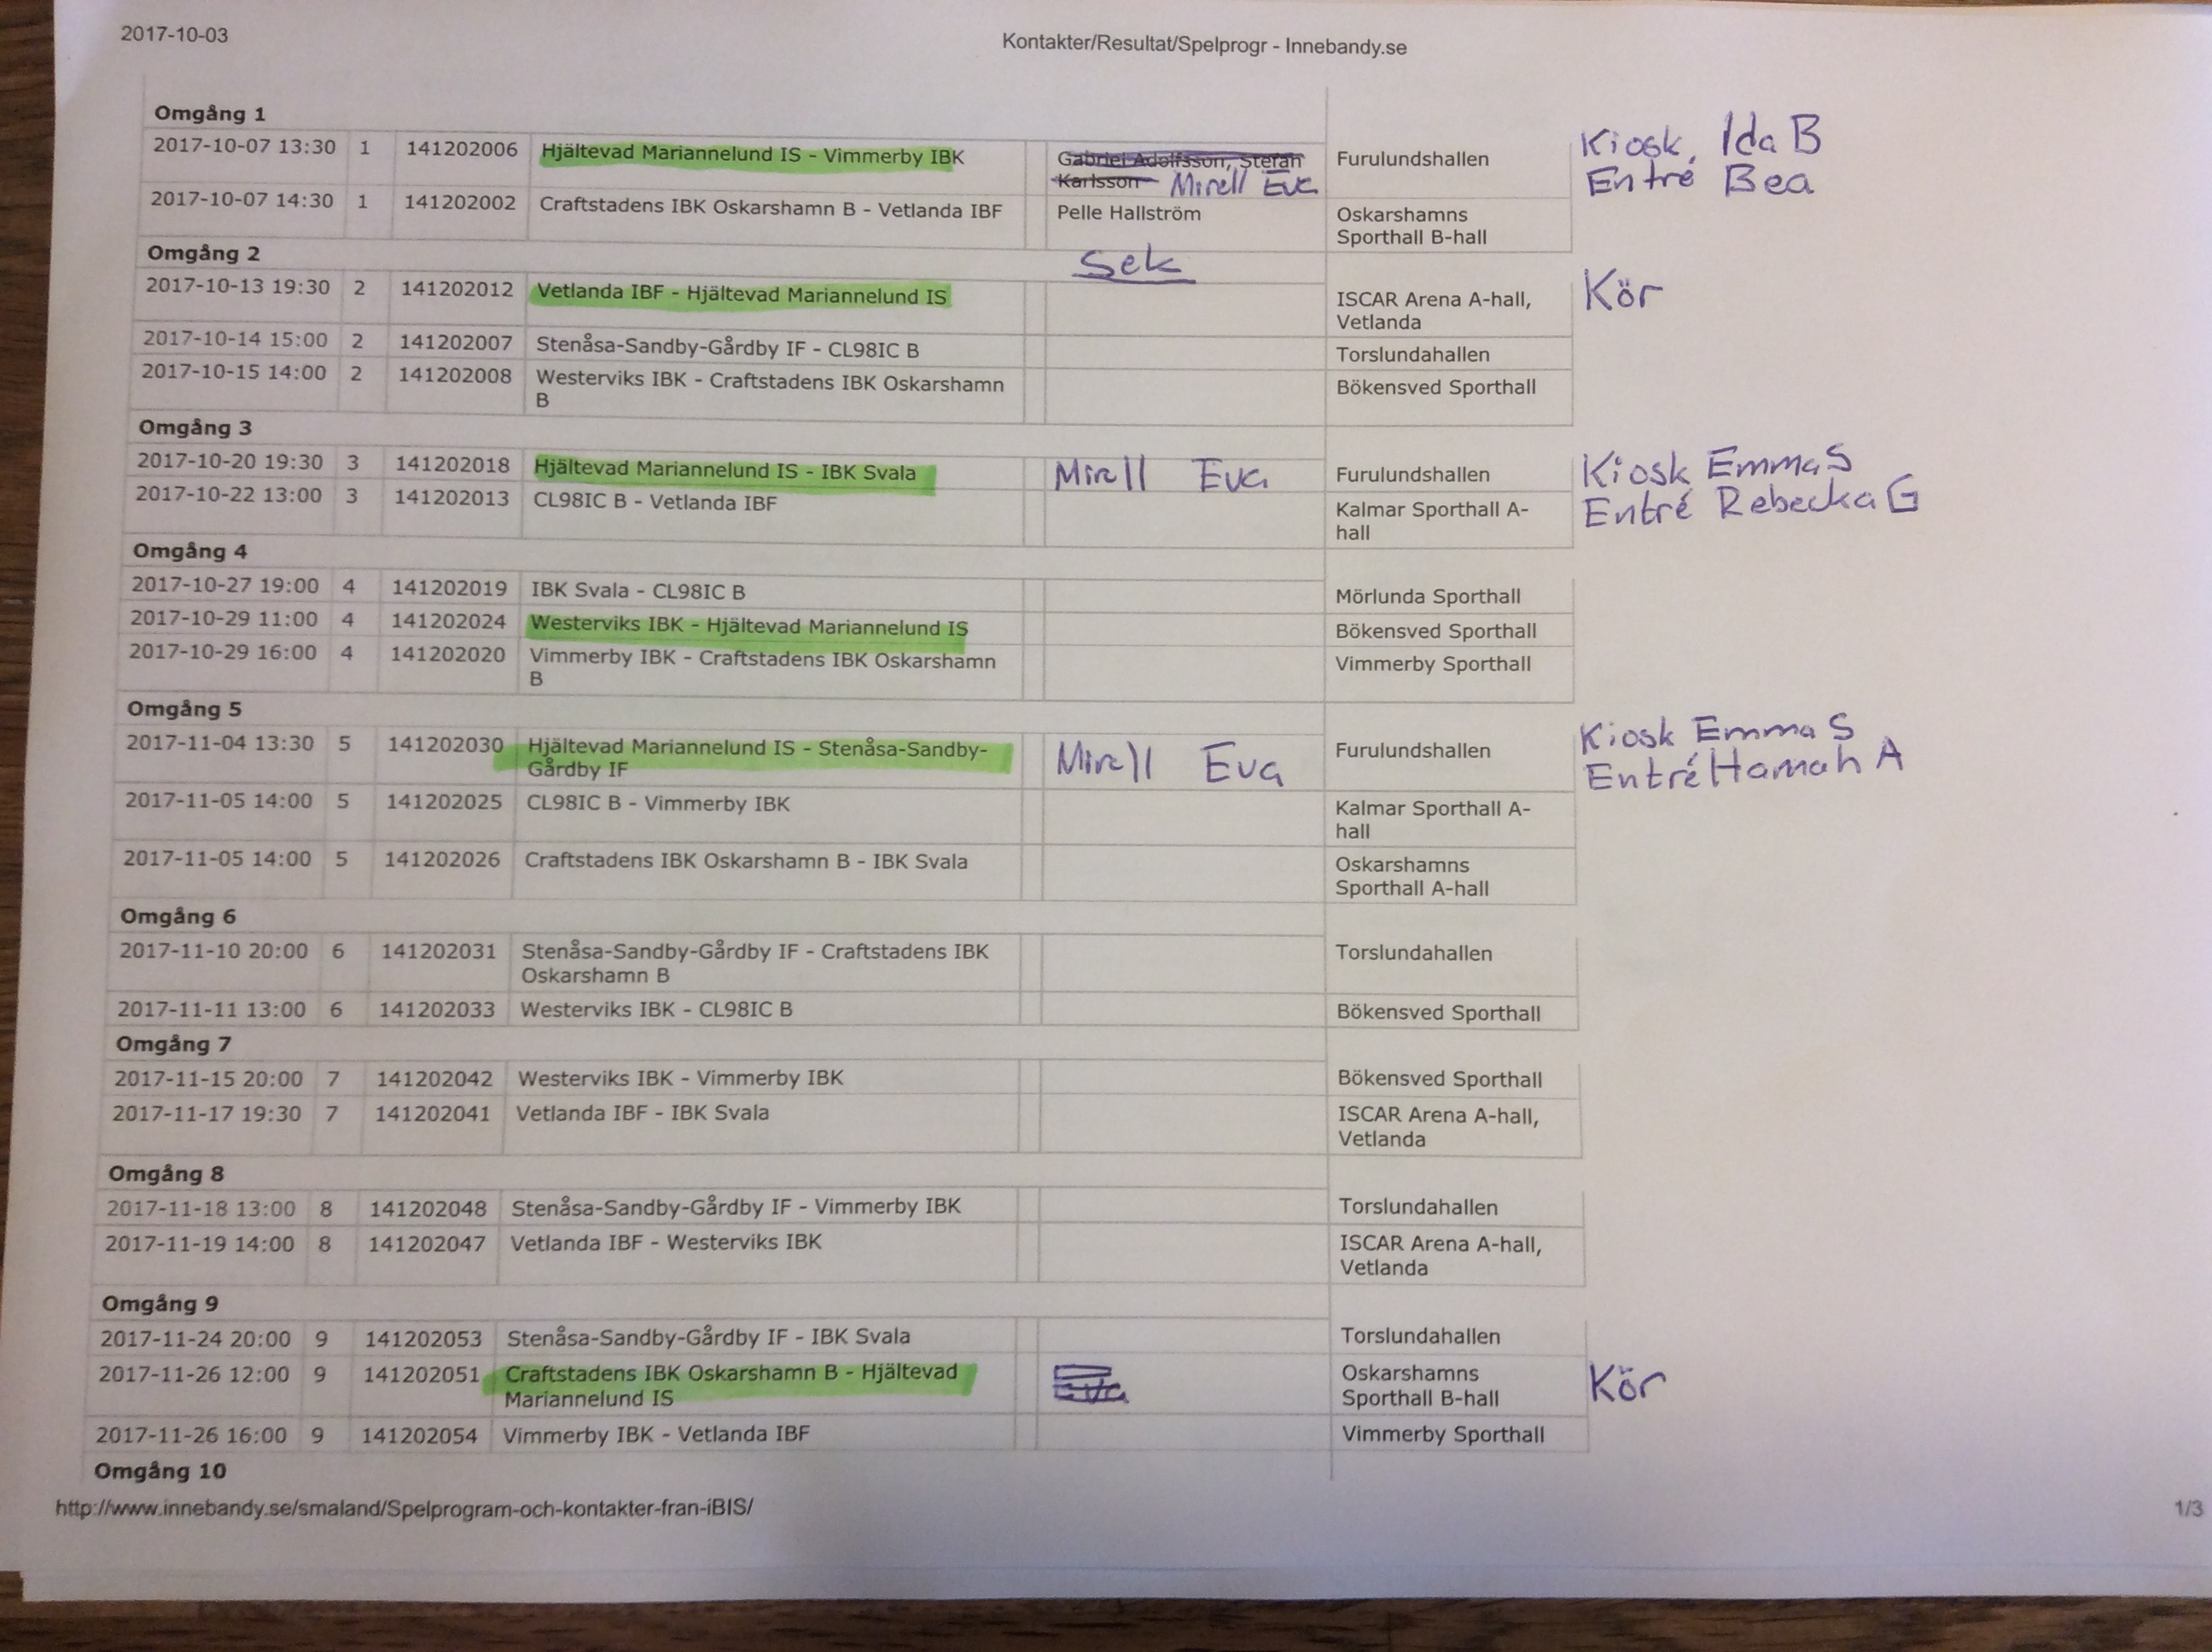 2017-10-03
Kontakter/Resultat/Spelprogr - Innebandy.se
Omgång 1
2017-10-07 13:30 1 141202006 Hjältevad Mariannelund IS - Vimmerby IBK Gabriel Adolfsson, Stefan Furulundshallen Kiosk. Ida B
Karlsson Mirell Eva Entré Bea
2017-10-07 14:30 1 141202002 Craftstadens IBK Oskarshamn B - Vetlanda IBF Pelle Hallström Oskarshamns
Sporthall B-hall
Omgång 2 Sek
2017-10-13 19:30 2 141202012 Vetlanda IBF - Hjältevad Mariannelund IS ISCAR Arena A-hall, Kör
Vetlanda
2017-10-14 15:00 2 141202007 Stenåsa-Sandby-Gårdby IF - CL98IC B Torslundahallen
2017-10-15 14:00 2 141202008 Westerviks IBK - Craftstadens IBK Oskarshamn Bökensved Sporthall
B
Omgång 3
2017-10-20 19:30 3 141202018 Hjältevad Mariannelund IS - IBK Svala Mirell Eva Furulundshallen Kiosk Emma S
2017-10-22 13:00 3 141202013 CL98IC B - Vetlanda IBF Kalmar Sporthall A- Entré Rebecka G
hall
Omgång 4
2017-10-27 19:00 4 141202019 IBK Svala - CL98IC B Mörlunda Sporthall
2017-10-29 11:00 4 141202024 Westerviks IBK - Hjältevad Mariannelund IS Bökensved Sporthall
2017-10-29 16:00 4 141202020 Vimmerby IBK - Craftstadens IBK Oskarshamn Vimmerby Sporthall
B
Omgång 5
2017-11-04 13:30 5 141202030 Hjältevad Mariannelund IS - Stenåsa-Sandby- Mirell Eva Furulundshallen Kiosk Emma S
Gårdby IF Entré Hannah A
2017-11-05 14:00 5 141202025 CL98IC B - Vimmerby IBK Kalmar Sporthall A-
hall
2017-11-05 14:00 5 141202026 Craftstadens IBK Oskarshamn B - IBK Svala Oskarshamns
Sporthall A-hall
Omgång 6
2017-11-10 20:00 6 141202031 Stenåsa-Sandby-Gårdby IF - Craftstadens IBK Torslundahallen
Oskarshamn B
2017-11-11 13:00 6 141202033 Westerviks IBK - CL98IC B Bökensved Sporthall
Omgång 7
2017-11-15 20:00 7 141202042 Westerviks IBK - Vimmerby IBK Bökensved Sporthall
2017-11-17 19:30 7 141202041 Vetlanda IBF - IBK Svala ISCAR Arena A-hall,
Vetlanda
Omgång 8
2017-11-18 13:00 8 141202048 Stenåsa-Sandby-Gårdby IF - Vimmerby IBK Torslundahallen
2017-11-19 14:00 8 141202047 Vetlanda IBF - Westerviks IBK ISCAR Arena A-hall,
Vetlanda
Omgång 9
2017-11-24 20:00 9 141202053 Stenåsa-Sandby-Gårdby IF - IBK Svala Torslundahallen
2017-11-26 12:00 9 141202051 Craftstadens IBK Oskarshamn B - Hjältevad Oskarshamns Kör
Mariannelund IS Eva Sporthall B-hall
2017-11-26 16:00 9 141202054 Vimmerby IBK - Vetlanda IBF Vimmerby Sporthall
Omgång 10
http://www.innebandy.se/smaland/Spelprogram-och-kontakter-fran-iBIS/ 1/3